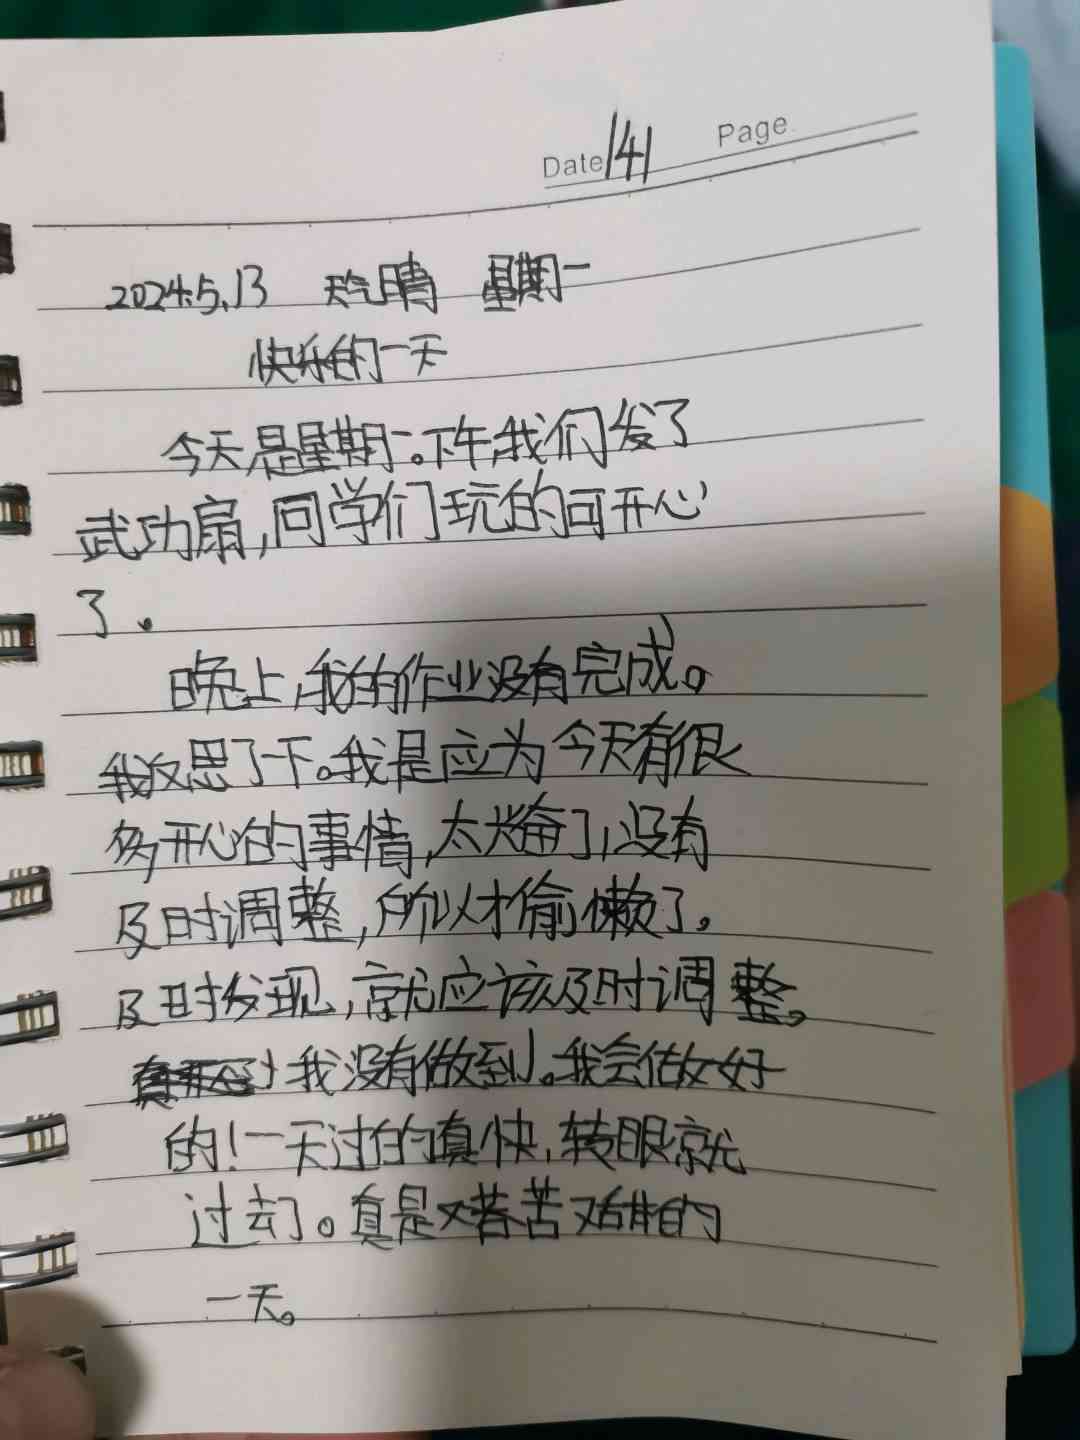 Date 141 Page
2024.5.13 天气晴 星期一
快乐的一天
今天是星期一。下午,我们发了
武功扇,同学们玩的可开心
了.
晚上,我的作业没有完成。
我反思了下。我是应为今天有很
多开心的事情,太兴奋了,没有
及时调整,所以才偷懒了。
及时发现,就应该及时调整。
我没有做到。我会做好
的!一天过的真快,转眼就
过去了。真是又苦又的
一天。